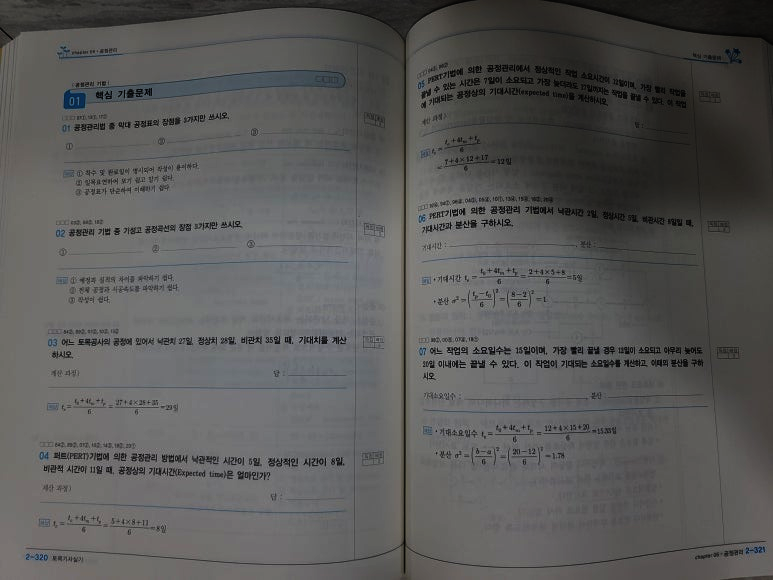 chapter 05 • 공정관리
| 공정관리 기법 |
01 핵심 기출문제
01 공정관리법 중 막대 공정표의 장점을 3가지만 쓰시오.
① ② ③
해답 ① 착수 및 완료일이 명시되어 작성이 용이하다.
② 일목요연하여 보기 쉽고 알기 쉽다.
③ 공정표가 단순하여 이해하기 쉽다.
02 공정관리 기법 중 기성고 공정곡선의 장점 3가지만 쓰시오.
① ② ③
해답 ① 예정과 실적의 차이를 파악하기 쉽다.
② 전체 공정과 시공속도를 파악하기 쉽다.
③ 작성이 쉽다.
03 어느 토목공사의 공정에 있어서 낙관치 27일, 정상치 28일, 비관치 35일 때, 기대치를 계산
하시오.
계산 과정) 답 :
해답 te = (to+4tm+tp)/6 = (27+4×28+35)/6 = 29일
04 퍼트(PERT)기법에 의한 공정관리 방법에서 낙관적인 시간이 5일, 정상적인 시간이 8일,
비관적 시간이 11일 때, 공정상의 기대시간(Expected time)은 얼마인가?
계산 과정) 답 :
해답 te = (to+4tm+tp)/6 = (5+4×8+11)/6 = 8일
2-320 토목기사실기
핵심 기출문제
05 PERT기법에 의한 공정관리에서 정상적인 작업 소요시간이 12일이며, 가장 빨리 작업을
끝낼 수 있는 시간은 7일이 소요되고 가장 늦더라도 17일까지는 작업을 끝낼 수 있다. 이 작업
에 기대되는 공정상의 기대시간(expected time)을 계산하시오.
계산 과정) 답 :
해답 te = (to+4tm+tp)/6
= (7+4×12+17)/6 = 12일
06 PERT기법에 의한 공정관리 기법에서 낙관시간 2일, 정상시간 5일, 비관시간 8일일 때,
기대시간과 분산을 구하시오.
기대시간 : , 분산 :
해답 • 기대시간 te = (to+4tm+tp)/6 = (2+4×5+8)/6 = 5일
• 분산 σ² = ((tp−to)/6)² = ((8−2)/6)² = 1
07 어느 작업의 소요일수는 15일이며, 가장 빨리 끝낼 경우 12일이 소요되고 아무리 늦어도
20일 이내에는 끝낼 수 있다. 이 작업이 기대되는 소요일수를 계산하고, 이때의 분산을 구하
시오.
기대소요일수 : , 분산 :
해답 • 기대소요일수 te = (to+4tm+tp)/6 = (12+4×15+20)/6 = 15.33일
• 분산 σ² = ((b−a)/6)² = ((20−12)/6)² = 1.78
chapter 05 • 공정관리 2-321